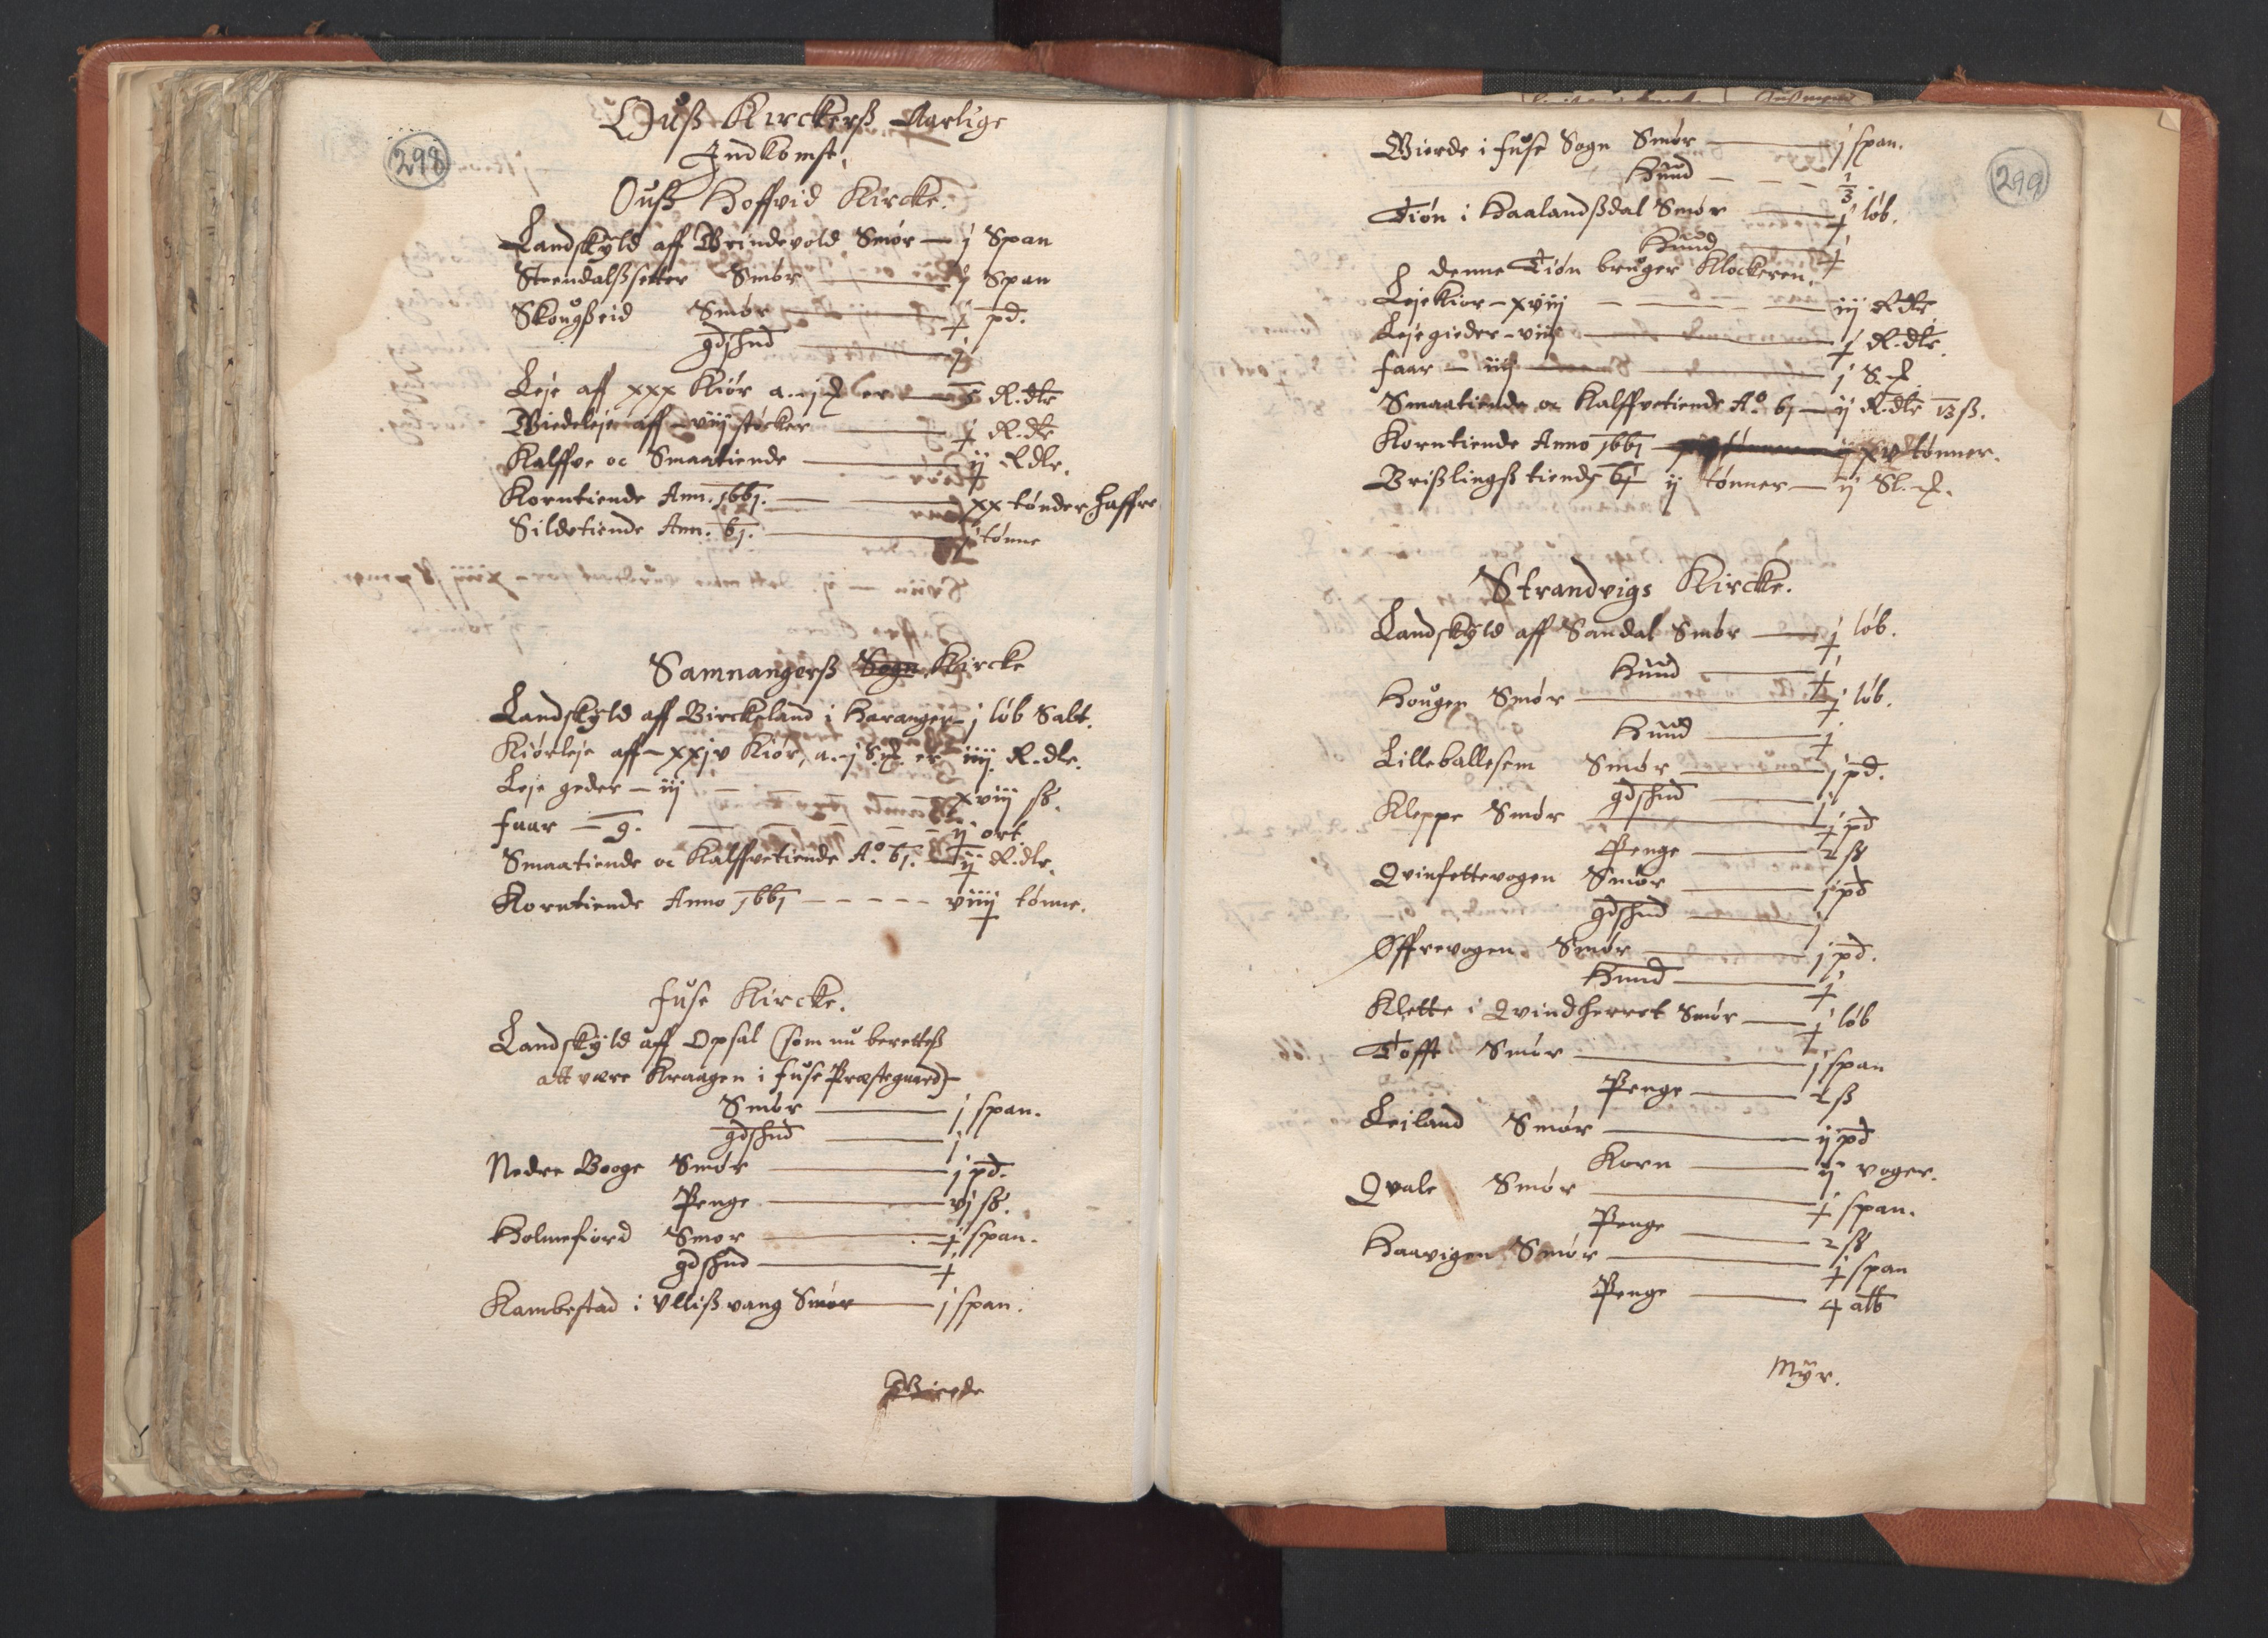 298
Ouß Kirckerß Aarlige
Indkomst,
Ouß Hoffvid Kircke.
Landskÿld aff Brindevold Smør — j Span
Steendalßsetter Smør — j Span
Skougßeid Smør — j pd.
gdshud — j
Leje aff xxx Kiør a. j  er — R.dlr
Biedeleje aff viij støcker — j R.dlr
Kalffve oc Smaatiende — ij R.dlr.
Korntiende Ann. 1661. — xx tønder haffre
Sildetiende Ann. 61. — j tønne
Samnangerß Sogn Kircke
Landskÿld aff Birckeland i Haranger j løb Salt.
Kiørleje aff xxjv Kiør, a. j S. er iiij. R.dlr.
Leje geder — iij — xviij sß.
Faar — 9. — ij ort
Smaatiende oc Kalffvetiende Aº. 61. — ij R.dlr.
Korntiende Anno 1661 — — — viiij tønne.
Fuse Kircke.
Landskÿld aff Opsal (som nu berettes
att være Kraagen i Fuse Præstegaard)
Smør — j span.
gdshud — j
Nedre Booge Smør — j pd.
Penge — vj sß.
Holmefiord Smør — j span.
gdshud — j
Kambestad i Ulliß vang Smør — j span.
Bierde
299
Bierde i Fuse Sogn Smør — j span.
Huud — 1/3
Tiøn i Haalandßdal Smør — j løb.
Huud — j
denne Tiøn bruger Klockeren.
Leje Kior — xviij — iij R.dlr
Leje gieder — viij — j R.dlr.
Faar — iiij — j S.
Smaatiende oc Kalffvetiende Aº. 61 — ij R.dlr 13 ß.
Korntiende Anno 1661 — xv tønner.
Brißlingß tiende 61 ij tønner — ij Sl.
Strandvigs Kircke.
Landskÿld aff Sandal Smør — j løb.
Huud — j
Hougen Smør — j løb.
Huud — j
Lilleballesem Smør — j pd.
gdshud — j
Kleppe Smør — j pd
Penge — 2 sß
Qvinsettevogen Smør — j pd
gdshud — j
Øffrevogen Smør — j pd.
Huud — j
Klette i Qvindherret Smør — j løb
Tofft Smør — j span
Penge — 2 ß
Leiland Smør — ij pd
Korn — ij voger.
Qvale Smør — j span.
Penge — 2 sß
Haavigen Smør — j span
Penge — 4 alb
Mÿr.